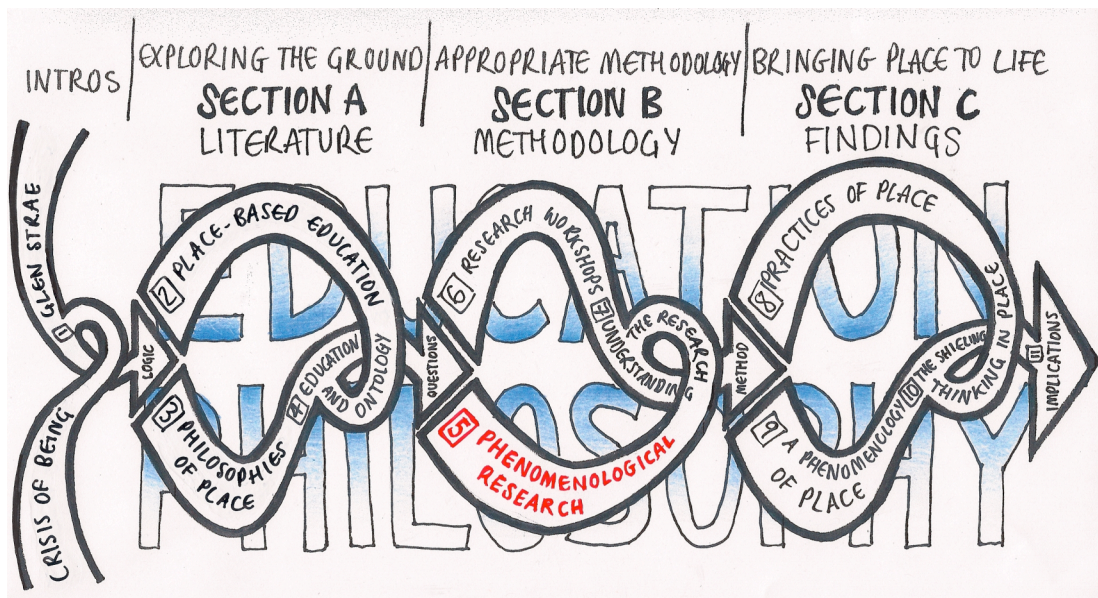 INTROS
EXPLORING THE GROUND
SECTION A
LITERATURE
APPROPRIATE METHODOLOGY
SECTION B
METHODOLOGY
BRINGING PLACE TO LIFE
SECTION C
FINDINGS
EDUCATION
PHILOSOPHY
1 GLEN STRAE
CRISIS OF BEING
LOGIC
2 PLACE-BASED EDUCATION
3 PHILOSOPHIES
OF PLACE
4 EDUCATION
AND ONTOLOGY
QUESTIONS
5 PHENOMENOLOGICAL
RESEARCH
6 RESEARCH WORKSHOPS
7 UNDERSTANDING
THE RESEARCH
METHOD
8 PRACTICES OF PLACE
9 A PHENOMENOLOGY
OF PLACE
10 THE SHIELING
THINKING IN PLACE
11 IMPLICATIONS